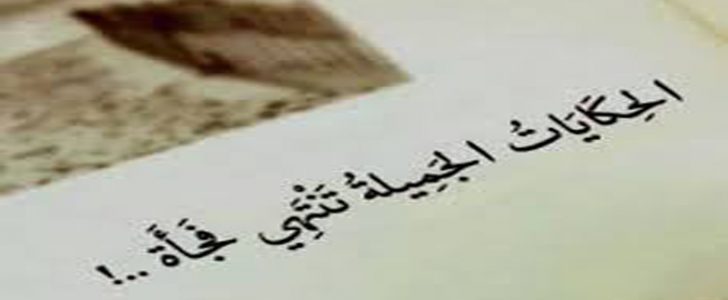 الحِكَايَاتُ الجَمِيلةُ تَنْتَهِي فَجَأَة ...!